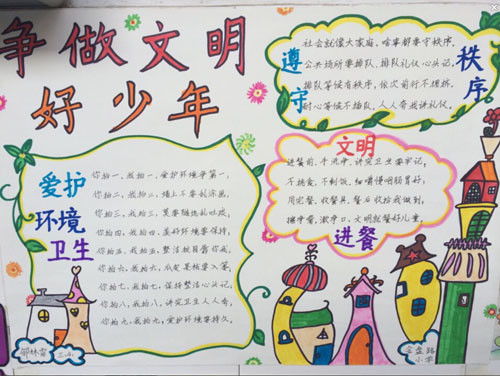 争做文明
好少年
遵守
秩序
社会就像大家庭，啥事都要守秩序。
公共场所要排队，排队礼仪心头记。
排队等候有秩序，依次前行不拥挤。
耐心等候不插队，人人奇我讲礼仪。
文明
进餐
进餐前，手洗净，讲究卫生要牢记。
不挑食，不剩饭，细嚼慢咽肠胃好。
用完餐，收餐具，餐桌收拾我做到。
擦净嘴，漱净口，文明就餐好儿童。
爱护
环境
卫生
你拍一，我拍一，爱护环境争第一。
你拍二，我拍二，墙上不要乱涂画。
你拍三，我拍三，
你拍四，我拍四，美好环境要保持。
你拍五，我拍五，整洁校园靠你我。
你拍六，我拍六，瓜壳果核要入篓。
你拍七，我拍七，保持整洁心头记。
你拍八，我拍八，讲究卫生人人夸。
你拍九，我拍九，爱护环境要持久。
三.4.
金盘路
小学